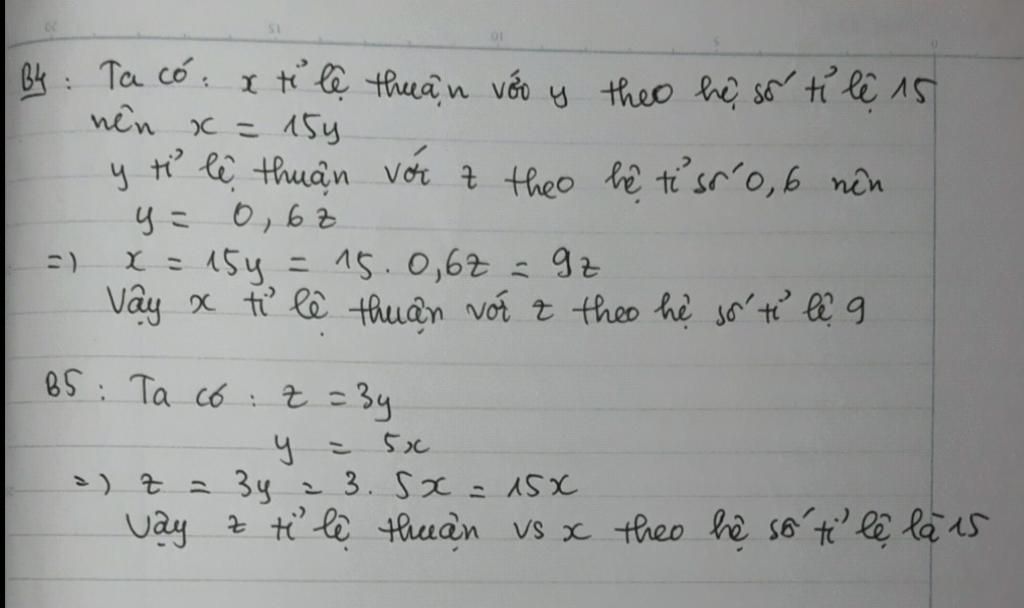 B4 : Ta có : x tỉ lệ thuận với y theo hệ số tỉ lệ 15
nên x = 15y
y tỉ lệ thuận với z theo hệ tỉ số 0,6 nên
y = 0,6z
=) x = 15y = 15. 0,6z = 9z
Vậy x tỉ lệ thuận với z theo hệ số tỉ lệ 9
B5 : Ta có : z = 3y
y = 5x
=) z = 3y = 3. 5x = 15x
Vậy z tỉ lệ thuận vs x theo hệ số tỉ lệ là 15